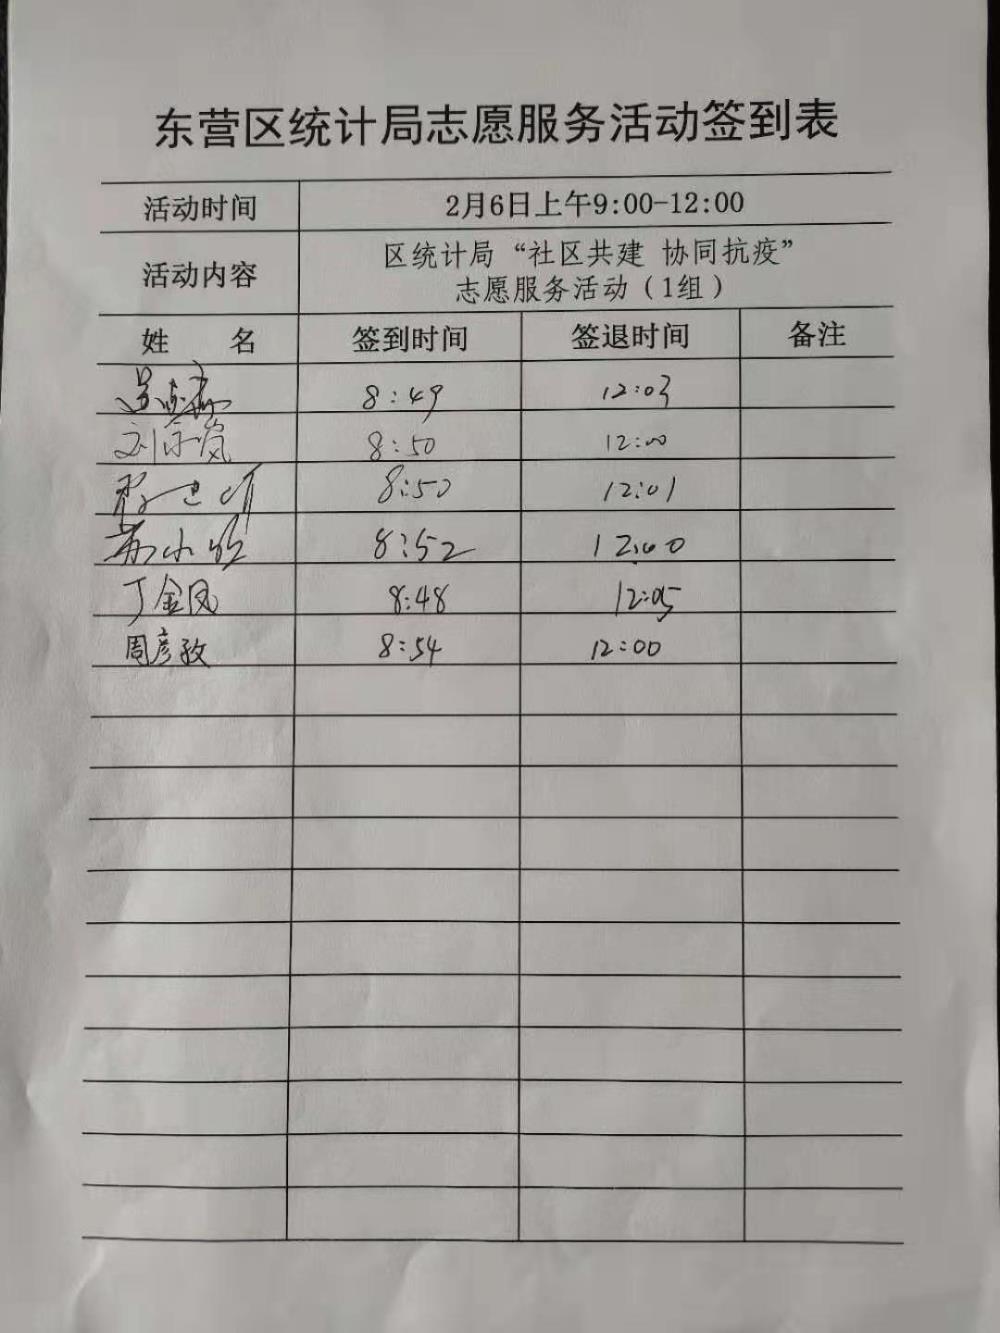 东营区统计局志愿服务活动签到表
活动时间 2月6日上午9:00-12:00
活动内容 区统计局“社区共建 协同抗疫”
志愿服务活动（1组）
姓 名 签到时间 签退时间 备注
8:49 12:03
8:50 12:00
8:50 12:01
8:52 12:00
丁金凤 8:48 12:05
周彦孜 8:54 12:00